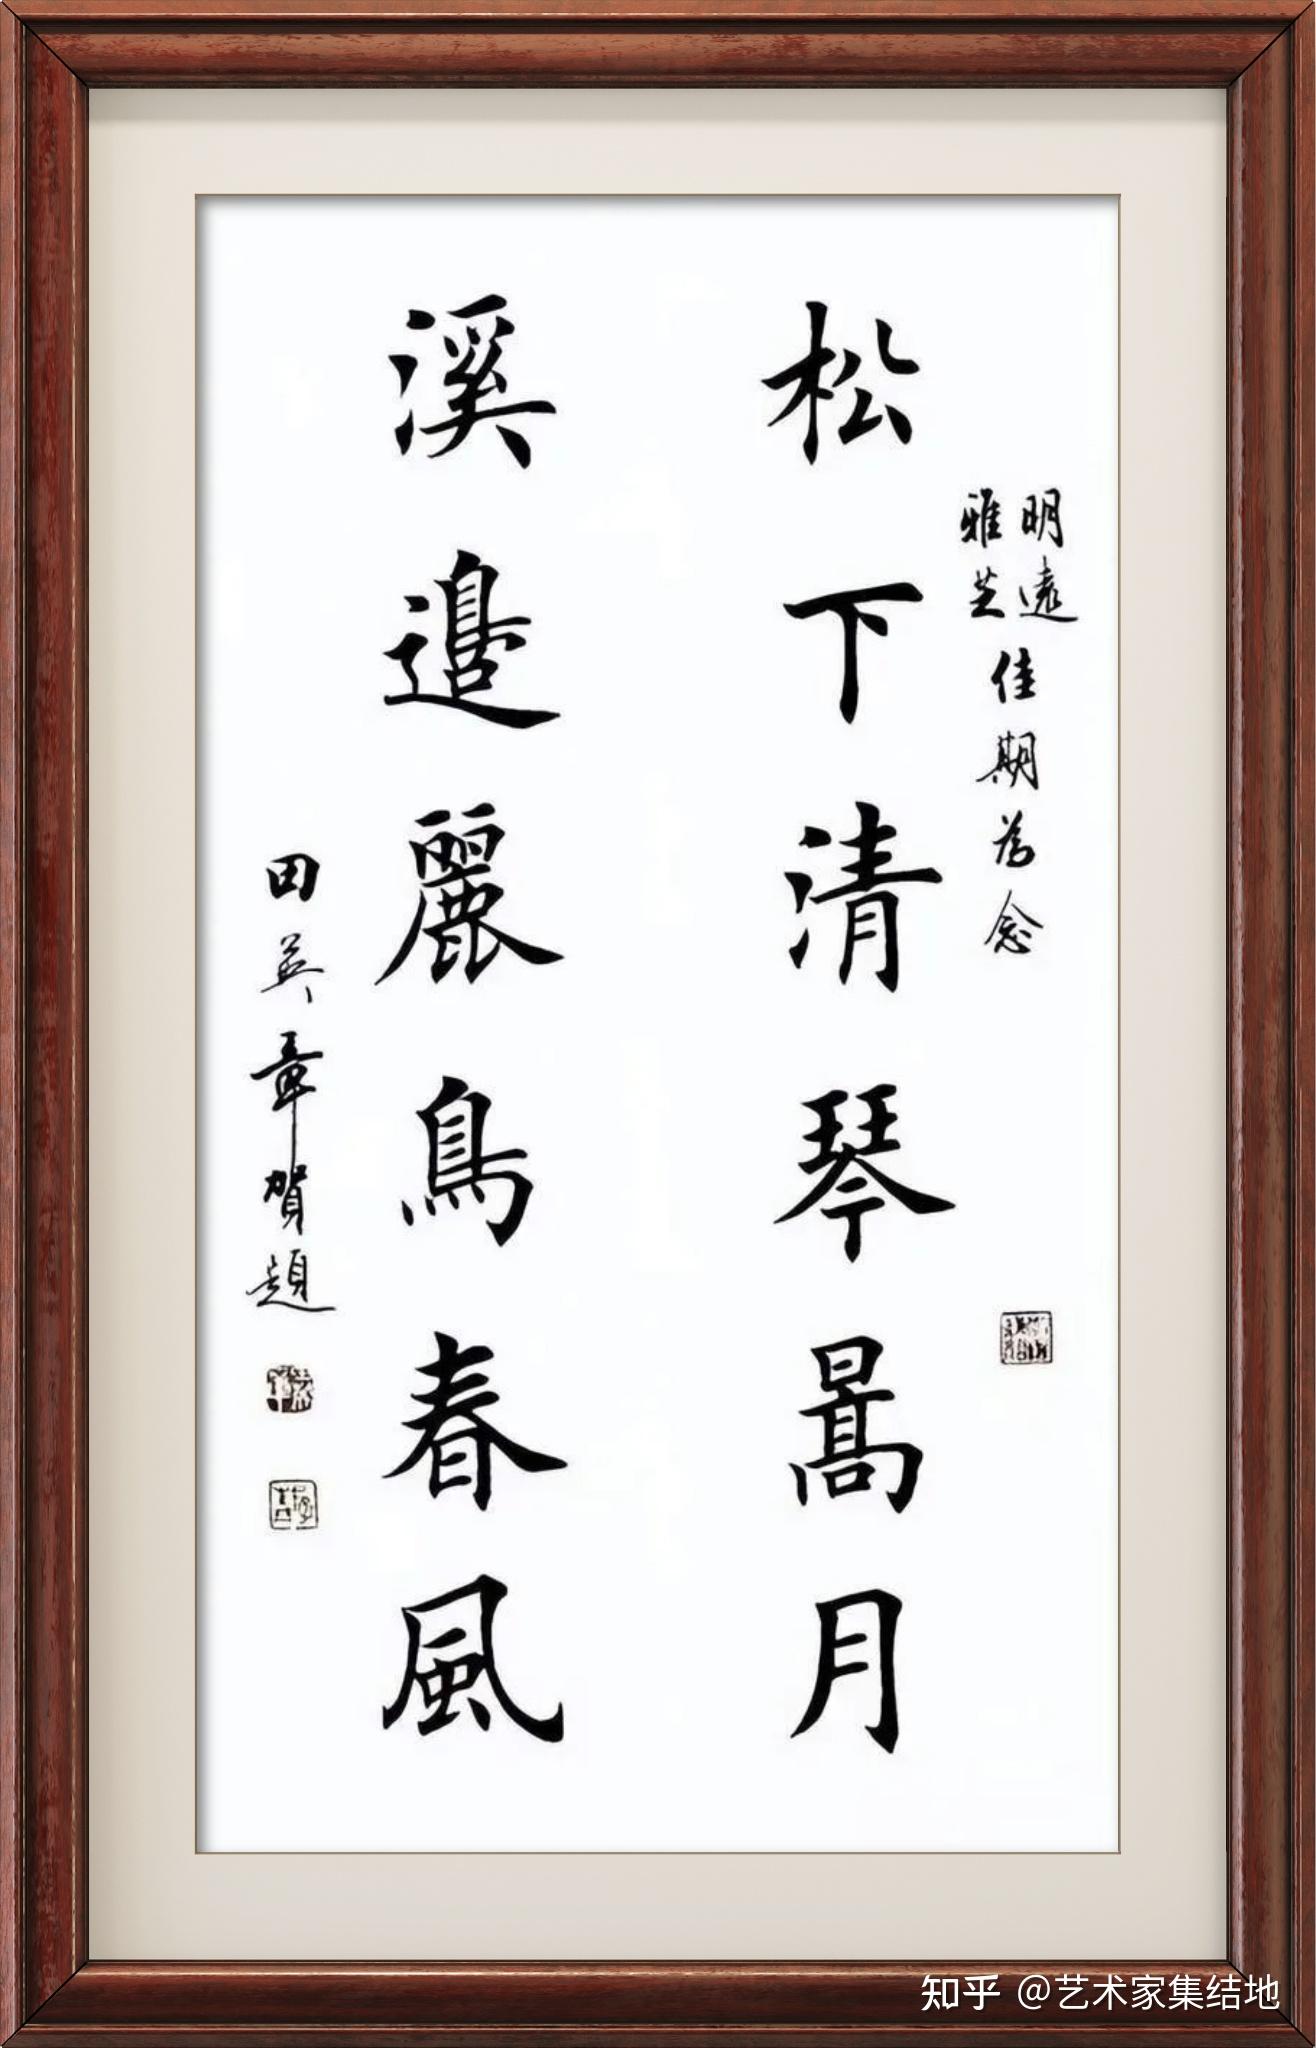 明遠
雅芝
佳期為念
松下清琴暠月
溪邊麗鳥春風
田英章賀題
知乎 @艺术家集结地